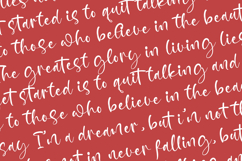 lies
et started is to quit talking
to those who believe in the beaut
The greatest glory in living lies
et started is to quit talking and
to those who believe in the beau
say I'm a dreamer, but i'm not th
not in never falling, but